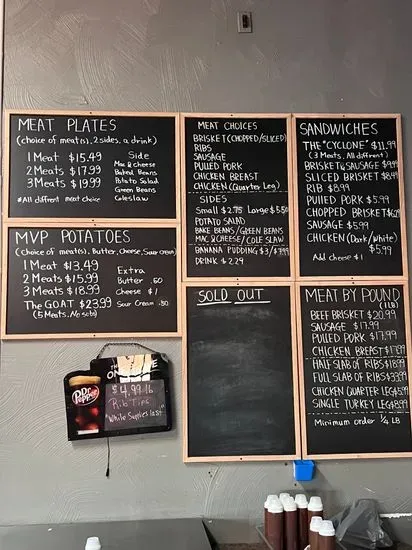 MEAT PLATES
(choice of meat(s), 2 sides, a drink)
1 Meat $15.49
2 Meats $17.99
3 Meats $19.99
#All diffrent meat choice
Side
Mac & cheese
Baked Beans
Potato Salad
Green Beans
Coleslaw
MVP POTATOES
(choice of meat(s), Butter, Cheese, Sour cream)
1 Meat $13.49
2 Meats $15.99
3 Meats $18.99
The G.O.A.T $23.99
(5 Meats, No subs)
Extra
Butter .50
Cheese $1
Sour Cream .50
MEAT CHOICES
BRISKET (CHOPPED/SLICED)
RIBS
SAUSAGE
PULLED PORK
CHICKEN BREAST
CHICKEN (Quarter Leg)
SIDES
Small $2.75 Large $5.50
POTATO SALAD
BAKE BEANS/GREEN BEANS
MAC & CHEESE/COLE SLAW
BANANA PUDDING $3/
DRINK $2.29
SOLD OUT
SANDWICHES
THE "CYCLONE" $11.99
(3 Meats, All diffrent)
BRISKET & SAUSAGE $9.99
SLICED BRISKET $8.49
RIB $8.99
PULLED PORK $5.99
CHOPPED BRISKET
SAUSAGE $5.99
CHICKEN (Dark/White)
$5.99
Add cheese $1
MEAT BY POUND
(1LB)
BEEF BRISKET $20.99
SAUSAGE $17.99
PULLED PORK $17.99
CHICKEN BREAST $17.99
HALF SLAB OF RIBS $18.99
FULL SLAB OF RIBS $33.99
CHICKEN QUARTER LEG $5.99
SINGLE TURKEY LEG $8.99
Minimum order 1/4 LB
Dr Pepper
$4.99 lb
Rib Tips
"While Supplies last"